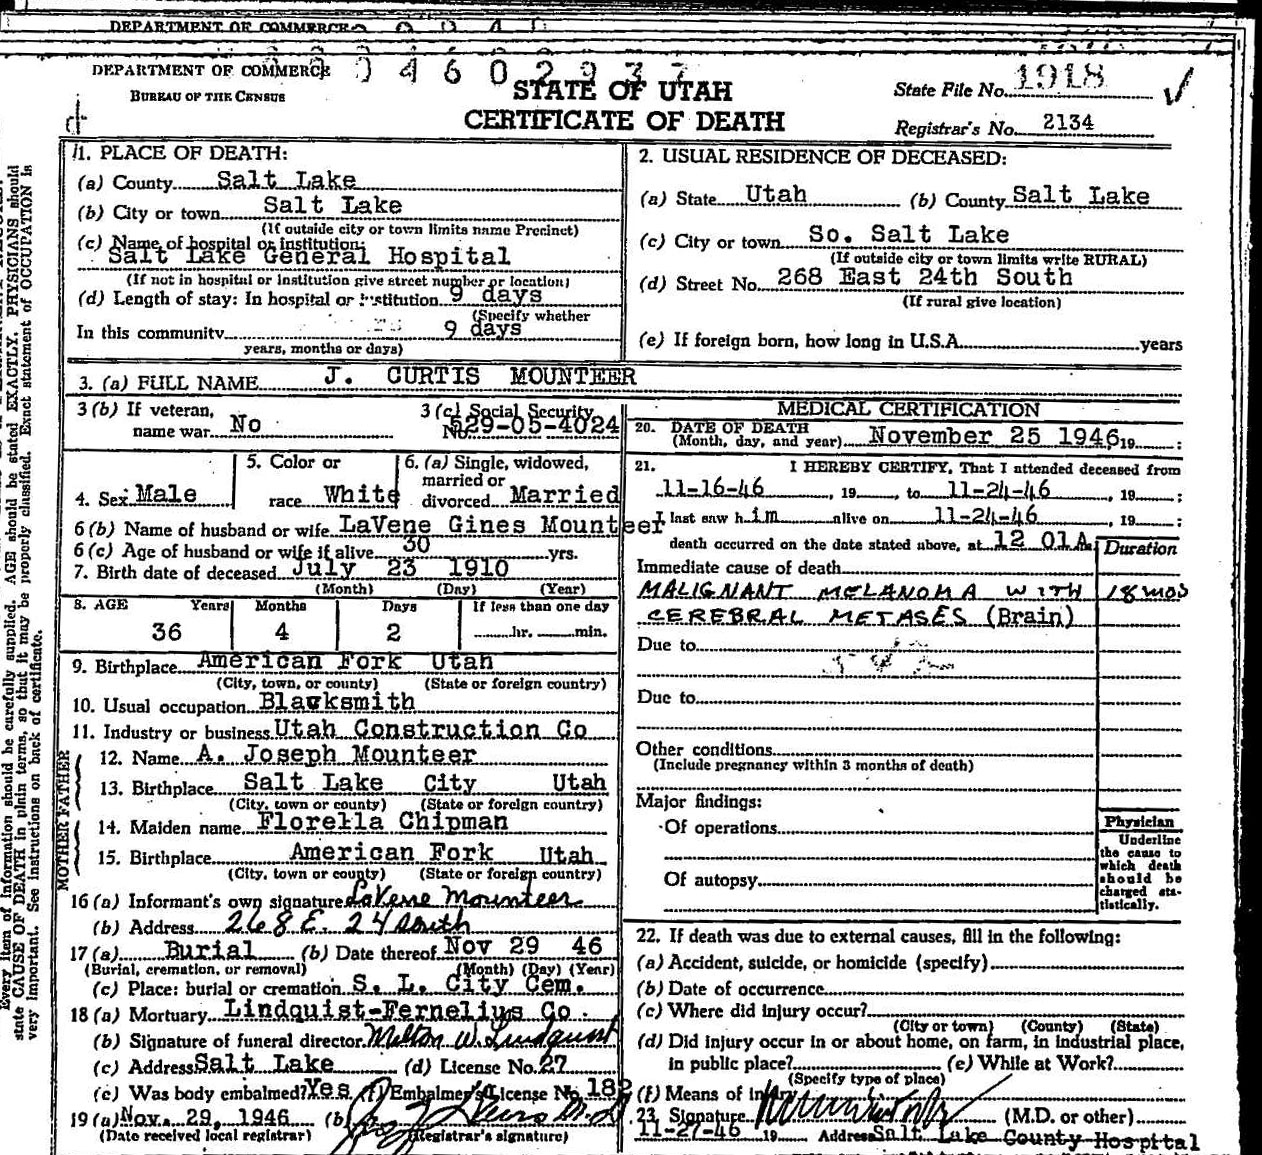 DEPARTMENT OF COMMERCE
DEPARTMENT OF COMMERCE
BUREAU OF THE CENSUS
STATE OF UTAH
CERTIFICATE OF DEATH
State File No. 1918 ✓
Registrar's No. 2134
1. PLACE OF DEATH:
(a) County Salt Lake
(b) City or town Salt Lake
(If outside city or town limits name Precinct)
(c) Name of hospital or institution:
Salt Lake General Hospital
(If not in hospital or institution give street number or location)
(d) Length of stay: In hospital or institution 9 days
(Specify whether
In this community 9 days
years, months or days)
2. USUAL RESIDENCE OF DECEASED:
(a) State Utah (b) County Salt Lake
(c) City or town So. Salt Lake
(If outside city or town limits write RURAL)
(d) Street No. 268 East 24th South
(If rural give location)
(e) If foreign born, how long in U.S.A. years
3. (a) FULL NAME J. CURTIS MOUNTEER
3 (b) If veteran, name war No
3 (c) Social Security No. 529-05-4024
4. Sex Male
5. Color or race White
6. (a) Single, widowed, married or divorced Married
6 (b) Name of husband or wife LaVene Gines Mounteer
6 (c) Age of husband or wife if alive 30 yrs.
7. Birth date of deceased July 23 1910
(Month) (Day) (Year)
8. AGE Years Months Days If less than one day
36 4 2 hr. min.
9. Birthplace American Fork Utah
(City, town, or county) (State or foreign country)
10. Usual occupation Blacksmith
11. Industry or business Utah Construction Co
FATHER
12. Name A. Joseph Mounteer
13. Birthplace Salt Lake City Utah
(City, town or county) (State or foreign country)
MOTHER
14. Maiden name Florella Chipman
15. Birthplace American Fork Utah
(City, town or county) (State or foreign country)
16 (a) Informant's own signature LaVene Mounteer
(b) Address 268 E. 24 South
17 (a) Burial (b) Date thereof Nov 29 46
(Burial, cremation, or removal) (Month) (Day) (Year)
(c) Place: burial or cremation S. L. City Cem.
18 (a) Mortuary Lindquist-Fernelius Co.
(b) Signature of funeral director Milton W. Lindquist
(c) Address Salt Lake (d) License No. 27
(e) Was body embalmed? Yes (f) Embalmer's License No. 182
19 (a) Nov. 29, 1946 (b)
(Date received local registrar) (Registrar's signature)
MEDICAL CERTIFICATION
20. DATE OF DEATH
(Month, day, and year) November 25 1946, 19 :
21. I HEREBY CERTIFY, That I attended deceased from
11-16-46, 19 , to 11-24-46, 19 ;
I last saw him alive on 11-24-46, 19 ;
death occurred on the date stated above, at 12 01A.
Duration
Immediate cause of death
MALIGNANT MELANOMA WITH 18 mos
CEREBRAL METASES (Brain)
Due to
Due to
Other conditions
(Include pregnancy within 3 months of death)
Major findings:
Of operations
Of autopsy
Physician
Underline the cause to which death should be charged statistically.
22. If death was due to external causes, fill in the following:
(a) Accident, suicide, or homicide (specify)
(b) Date of occurrence
(c) Where did injury occur?
(City or town) (County) (State)
(d) Did injury occur in or about home, on farm, in industrial place,
in public place? (e) While at Work?
(Specify type of place)
(f) Means of
23. Signature (M.D. or other)
11-27-46 19 Address Salt Lake County Hospital
Every item of information should be carefully supplied. AGE should be stated EXACTLY. PHYSICIANS should
state CAUSE OF DEATH in plain terms, so that it may be properly classified. Exact statement of OCCUPATION is
very important. See instructions on back of certificate.